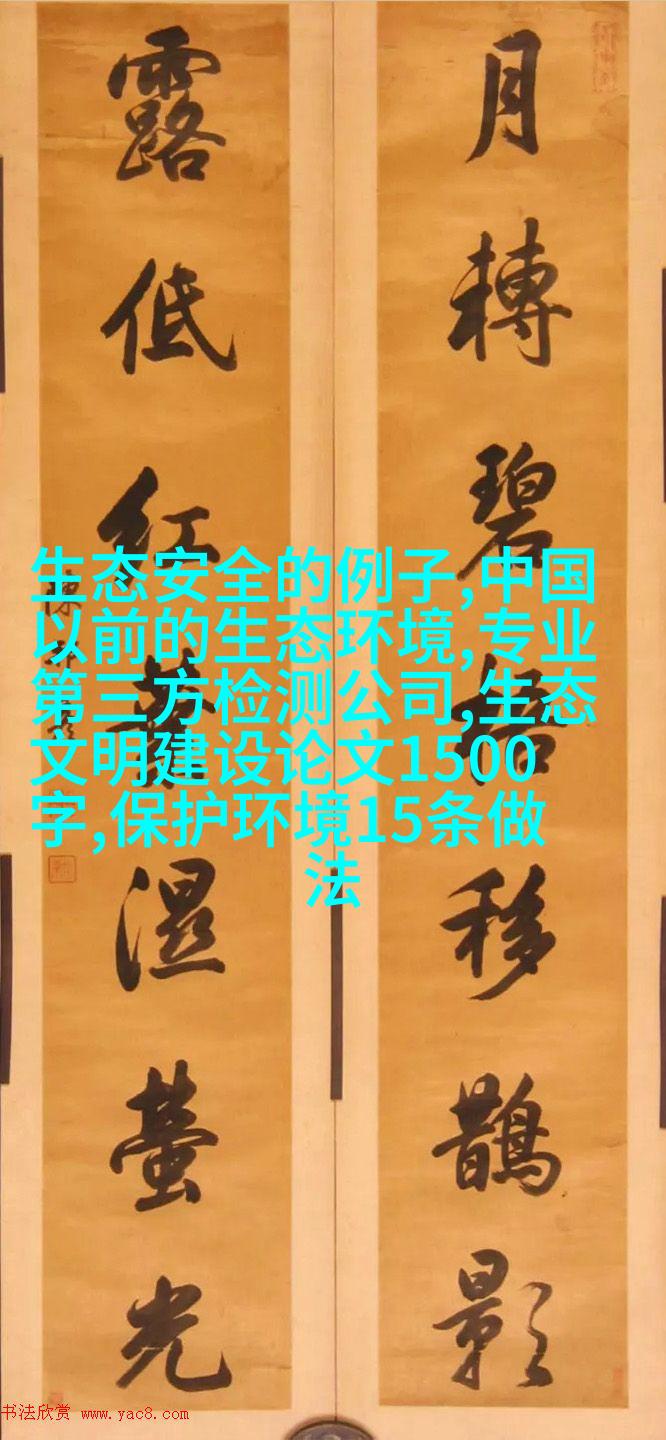 月轉碧梧移鵲影
露低紅湿螢光
生态安全的例子,中国
以前的生态环境,专业
第三方检测公司,生态
文明建设论文1500
字,保护环境15条做
法
书法欣赏 www.yac8.com